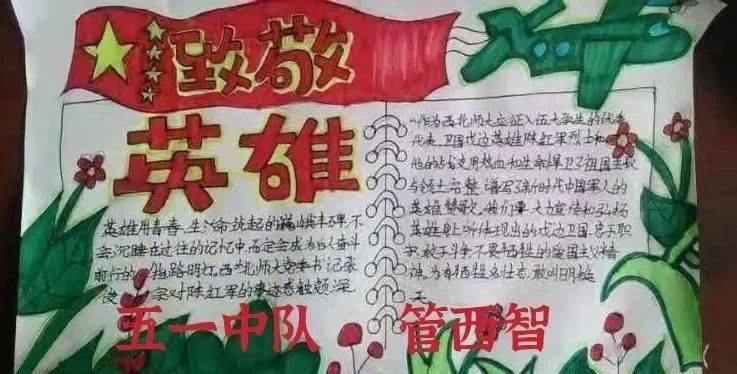 致敬
英雄
英雄用青春、生命筑起的巍峨丰碑,不
会沉睡在过往的记忆中,而定会成为后人奋斗
前行的 指路明灯。西北师大党委书记张
俊宗对陈红军的事迹感触颇深
"作为西北师大应征入伍大学生的优秀
代表,卫国戍边英雄陈红军烈士和
他的战友用热血和生命捍卫了祖国主权
与领土完整,谱写了新时代中国军人的
英雄赞歌。我们要大力宣传和弘扬
英雄身上所体现出的戍边卫国、忠于职
守、敢于斗争、不要牺牲的爱国主义精
神。为有牺牲多壮志,敢叫日月换
天。
五一中队 管西智